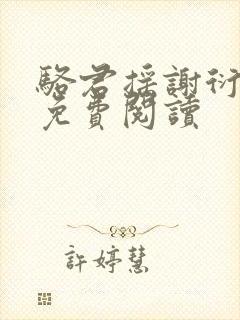 駱君搖謝衍
免費閱讀
許婷慧